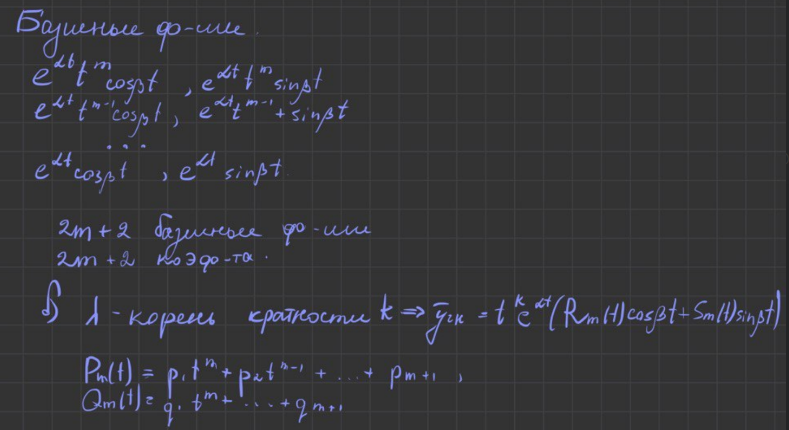 Базисные ф-ции.
e^{αt} t^m cosβt, e^{αt} t^m sinβt
e^{αt} t^{m-1} cosβt, e^{αt} t^{m-1} + sinβt
...
e^{αt} cosβt, e^{αt} sinβt
2m+2 базисные ф-ции
2m+2 коэф-та.
λ - корень кратности k ⇒ = t^k e^{αt} (R_m(t) cosβt + S_m(t) sinβt)
P_m(t) = p_1 t^m + p_2 t^{m-1} + ... + p_{m+1},
Q_m(t) = q_1 t^m + ... + q_{m+1}